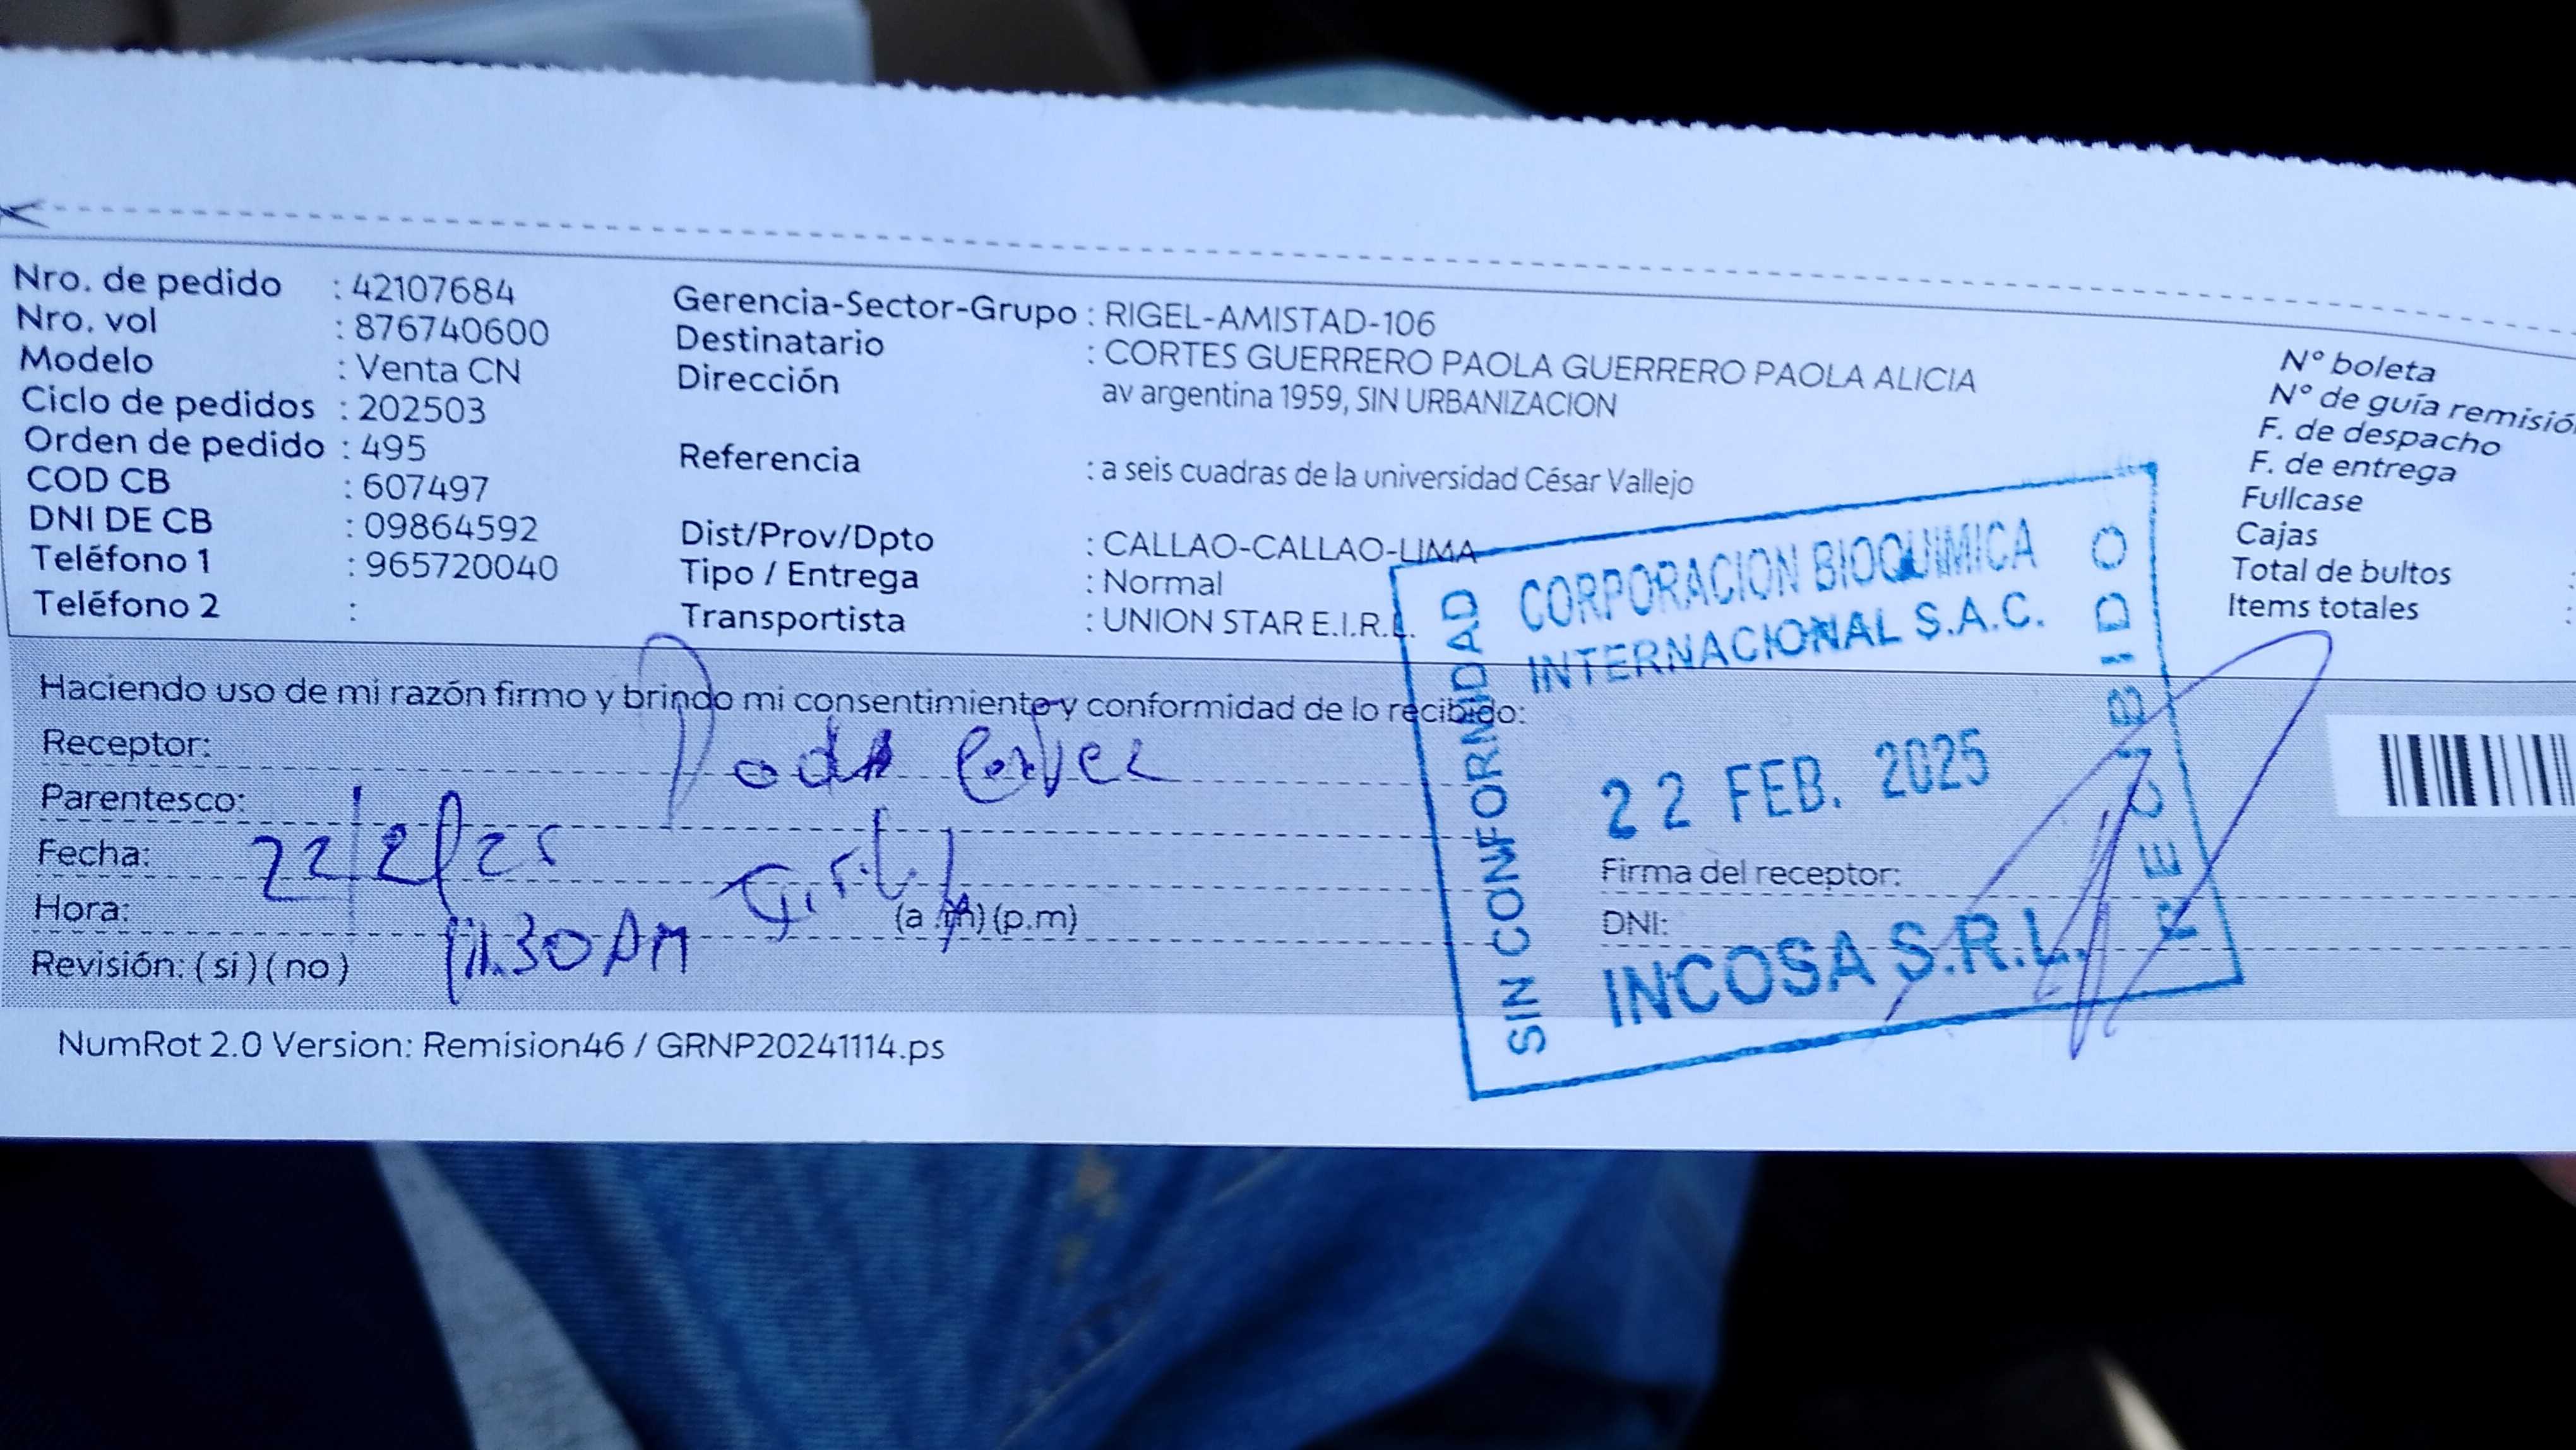 Nro. de pedido : 42107684
Nro. vol : 876740600
Modelo : Venta CN
Ciclo de pedidos : 202503
Orden de pedido : 495
COD CB : 607497
DNI DE CB : 09864592
Teléfono 1 : 965720040
Teléfono 2 :
Gerencia-Sector-Grupo : RIGEL-AMISTAD-106
Destinatario : CORTES GUERRERO PAOLA GUERRERO PAOLA ALICIA
Dirección av argentina 1959, SIN URBANIZACION
Referencia : a seis cuadras de la universidad César Vallejo
Dist/Prov/Dpto : CALLAO-CALLAO-LIMA
Tipo / Entrega : Normal
Transportista : UNION STAR E.I.R.L.
N° boleta
N° de guía remisión
F. de despacho
F. de entrega
Fullcase
Cajas
Total de bultos :
Items totales :
Haciendo uso de mi razón firmo y brindo mi consentimiento y conformidad de lo recibido:
Receptor:
Parentesco:
Fecha: 22/2/25
Hora: 11.30 AM (a.m) (p.m)
Revisión: (si) (no)
CORPORACION BIOQUIMICA
INTERNACIONAL S.A.C.
SIN CONFORMIDAD
RECIBIDO
22 FEB. 2025
Firma del receptor:
DNI:
INCOSA S.R.L.
NumRot 2.0 Version: Remision46 / GRNP20241114.ps